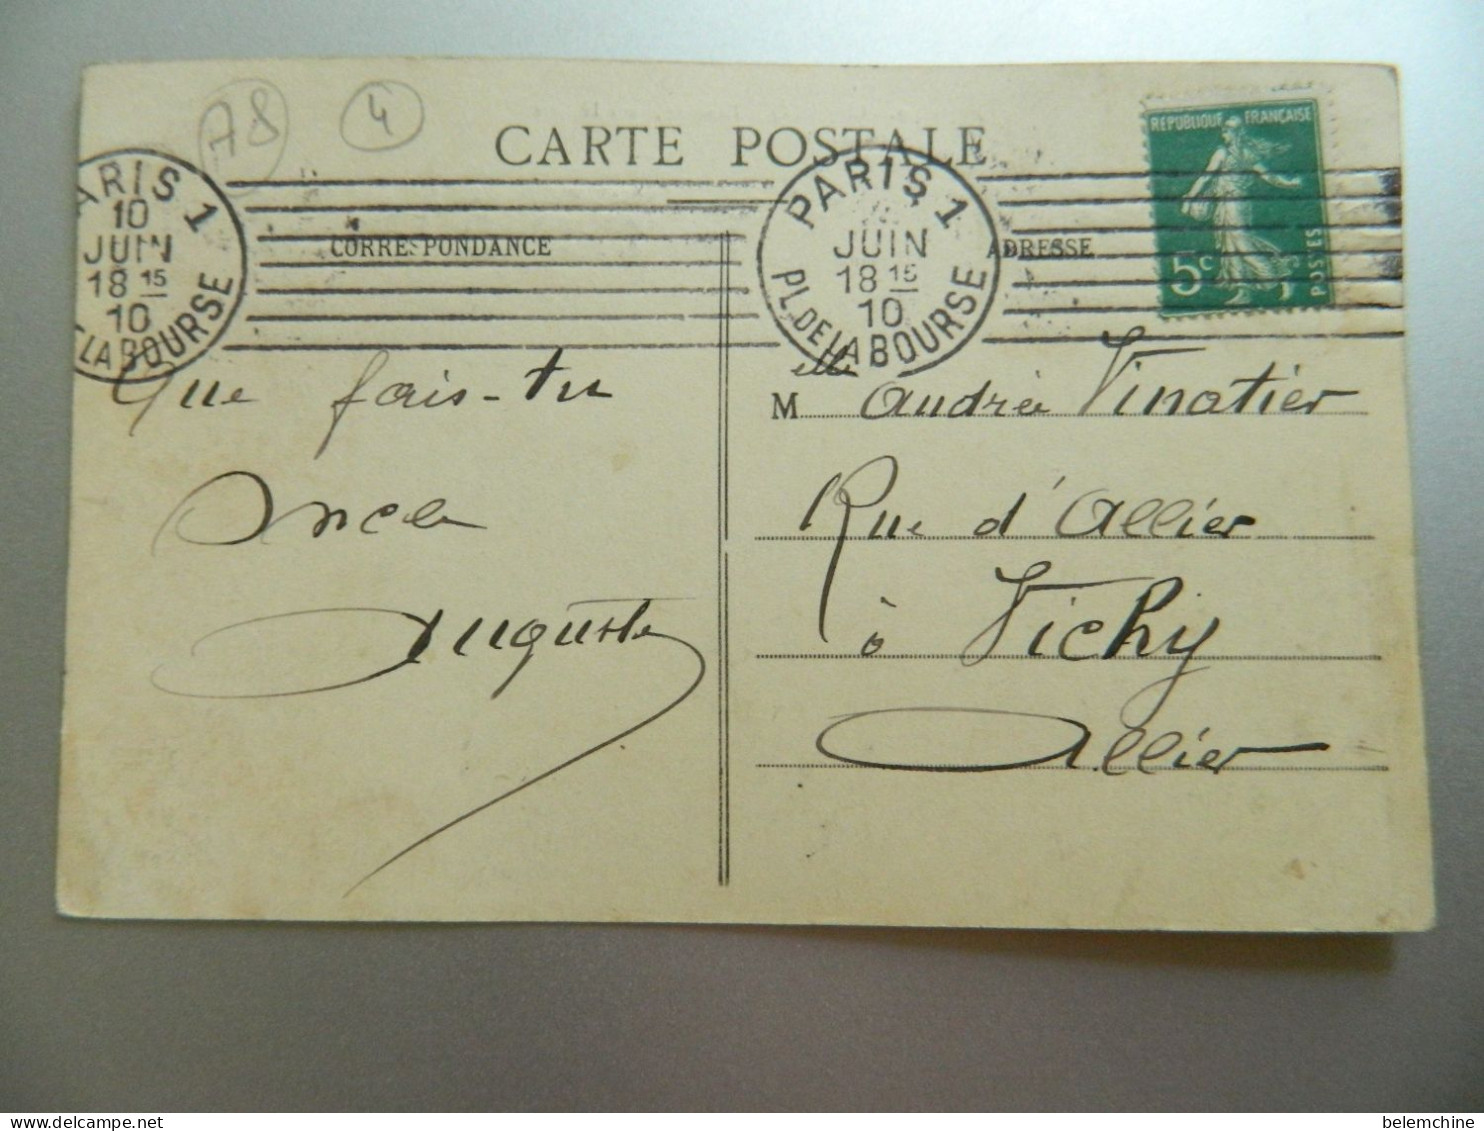 A8 4
CARTE POSTALE
RÉPUBLIQUE FRANÇAISE
5c POSTES
PARIS 1
10
JUIN
18 15
10
PL. DE LA BOURSE
PARIS 1
JUIN
18 15
10
PL. DE LA BOURSE
CORRESPONDANCE
ADRESSE
Que fais-tu
Oncle
Auguste
Melle Andrée Vinatier
Rue d'Allier
à Vichy
Allier
belemchine